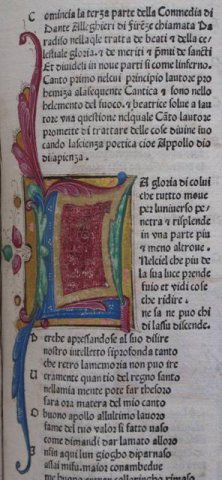 Comincia la terza parte della Commedia di
Dante Alleghieri di firēze chiamata Pa
radiso nella q̄le tratta de beati & della ce
lestiale gloria & de meriti & p̄mii de sancti
Et diuidesi in noue parti si come linferno
Canto primo nel cui principio lautore pro
hemiza alasequente Cantica & sono nello
helemento del fuoco & beatrice solue a lau
tore vna questione nel quale Cāto lautore
promette di trattare delle cose diuine iuuo
cando la scienza poetica cioe Appollo dio
di sapienza.
LA gloria di colui
che tutto moue
per luniuerso pe
netra & risplende
in vna parte piu
& meno altroue.
Nel ciel che piu de
la sua luce prende
fuio et vidi cose
che ridire.
ne sa ne puo chi
di lassu discende.
Perche apressandose al suo disire
nostro intelletto si profonda tanto
che retro la memoria non puo ire
Veramente quantio del regno santo
nella mia mente pote far thesoro
sara ora matera del mio canto
O buono apollo allultimo lauoro
fame del tuo valor si fatto uaso
come dimandi dar lamato alloro
Insin a qui lun giogho di parnaso
assai mi fu. ma ior con ambedue